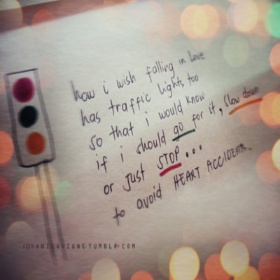 how i wish falling in love
has traffic lights too
so that i would know
if i should go for it, slow down
or just STOP...
to avoid HEART ACCIDENT.